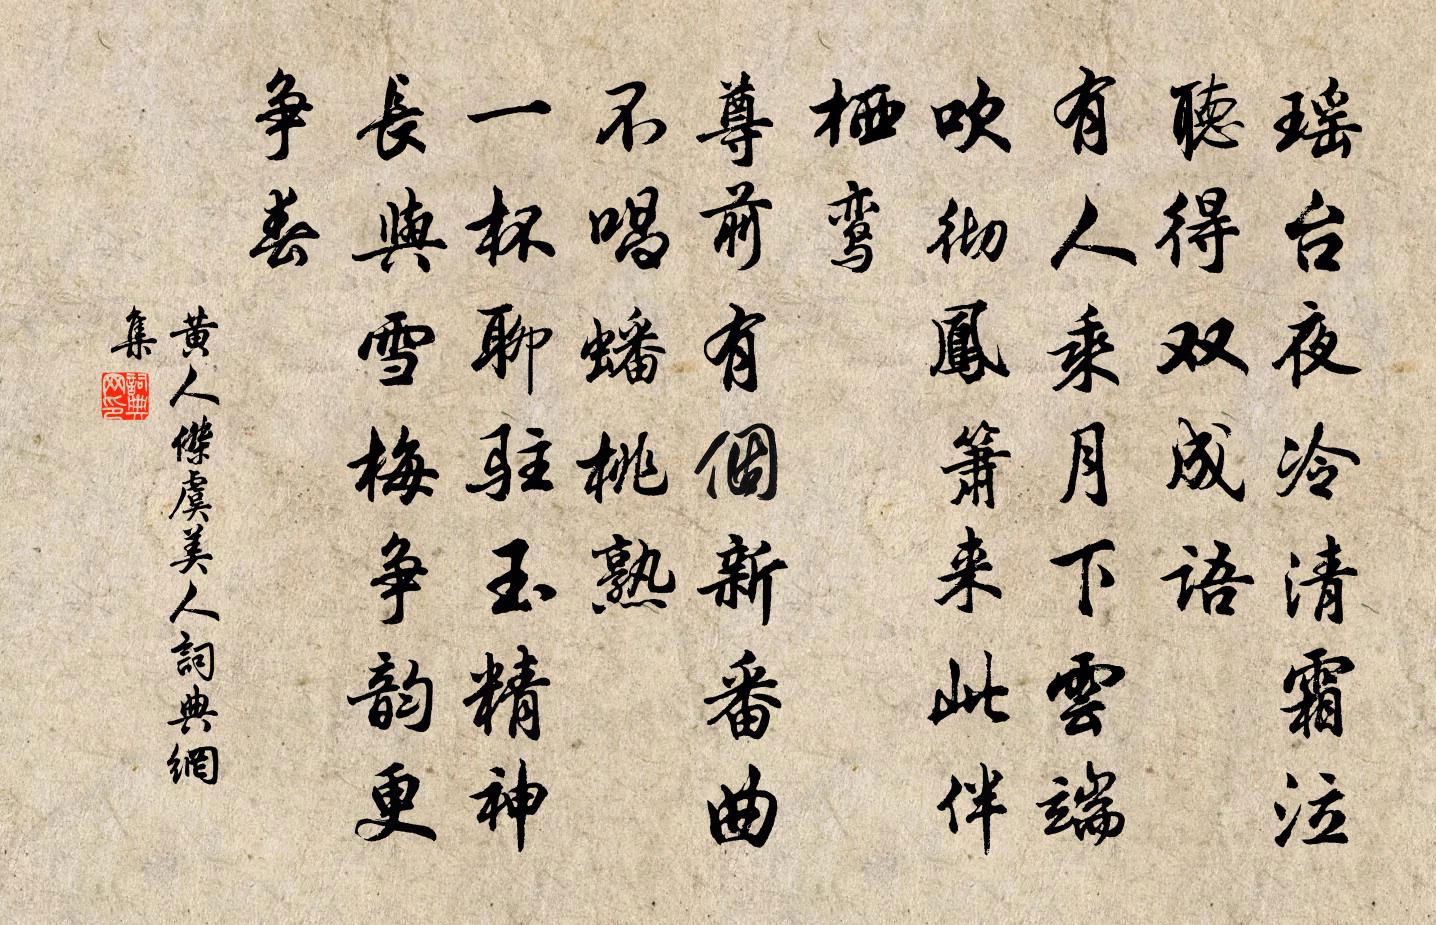 瑶台夜冷清霜泣
聽得双成語
有人乘月下雲端
吹彻鳳簫来此伴
栖鸾
尊前有個新番曲
不唱蟠桃熟
一杯聊駐玉精神
長與雪梅争韵更
争春
黄人傑虞美人詞典網
集
詞典
网印